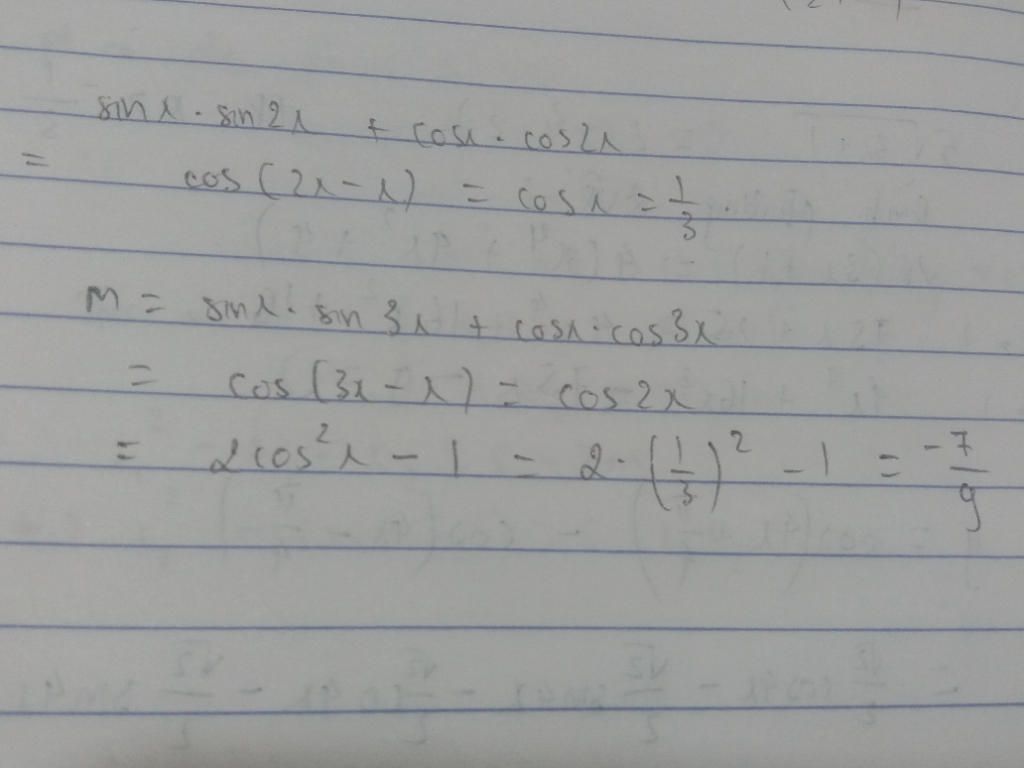 sin x . sin 2x + cos x . cos 2x
= cos (2x - x) = cos x = 1/3 .
M = sin x . sin 3x + cos x . cos 3x
= cos (3x - x) = cos 2x
= 2 cos² x - 1 = 2 . (1/3)² - 1 = -7/9